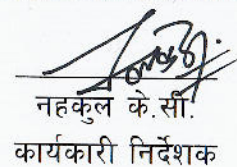 नहकुल के.सी.
कार्यकारी निर्देशक